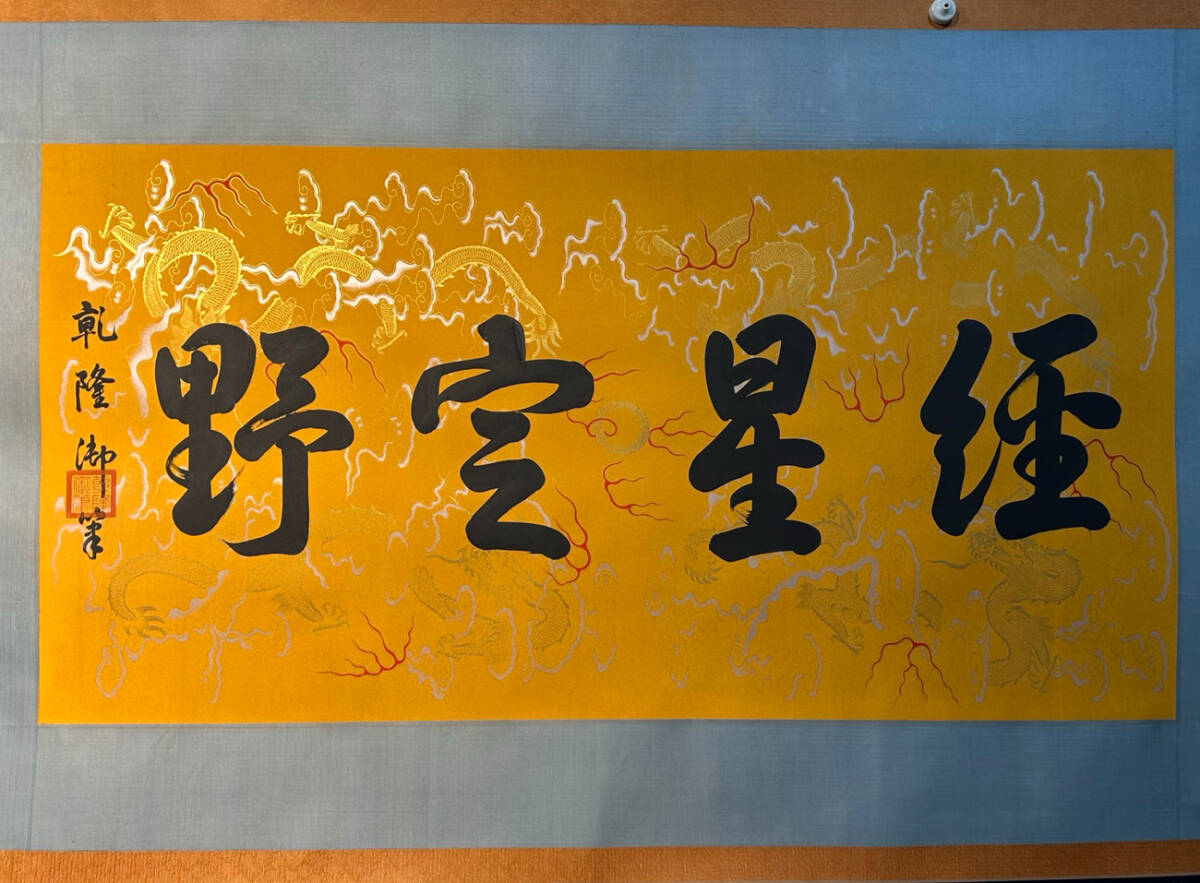 經星定野
乾隆御筆